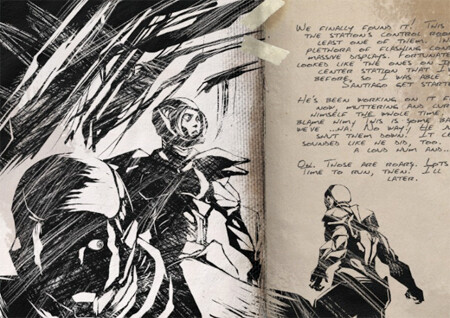 WE FINALLY FOUND IT! THIS
THE STATION'S CONTROL ROOM
LEAST ONE OF THEM. IN
PLETHORA OF FLASHING CON
MASSIVE DISPLAYS. FORTUNATE
LOOKED LIKE THE ONES ON
CENTER STATION THAT I
BEFORE, SO I WAS ABLE
SANTIAGO GET START
HE'S BEEN WORKING ON IT
NOW, MUTTERING AND CUR
HIMSELF THE WHOLE TIME.
BLAME HIM; THIS IS SOME
WE'VE ...HA! NO WAY! HE
SHUT THEM DOWN. IT
SOUNDED LIKE HE DID, TOO.
A LOUD HUM AND...
OH. THOSE ARE ROARS. LOTS
TIME TO RUN, THEN. I'LL
LATER.